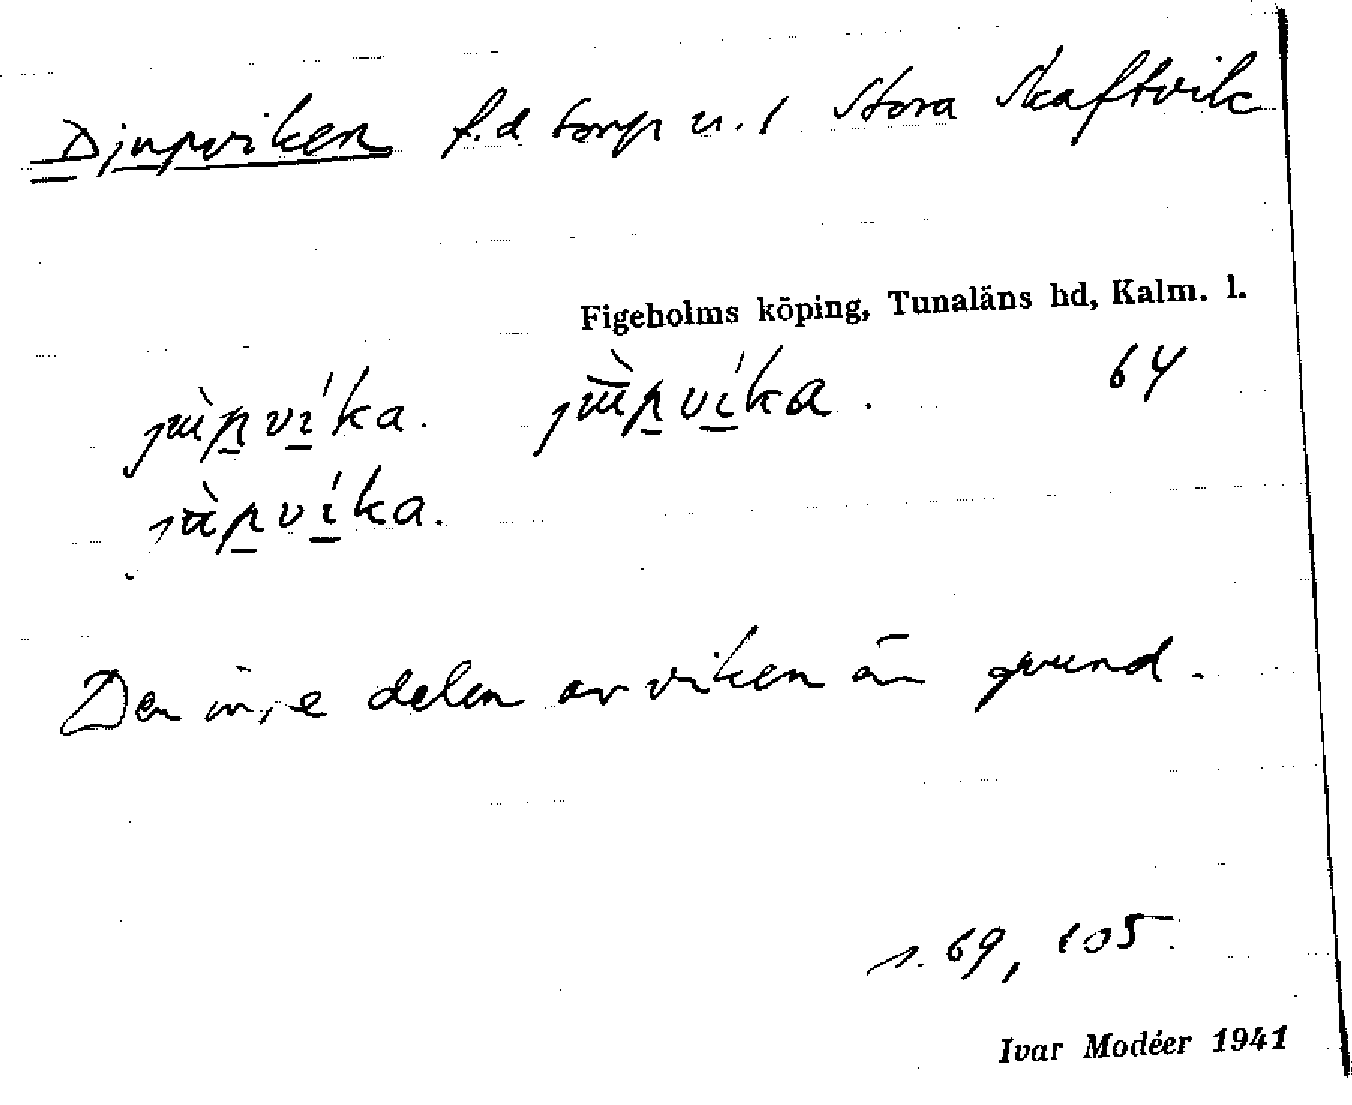 Djupviken f.d torp u. t Stora Skaftvik
Figeholms köping, Tunaläns hd, Kalm. l.
jʉ̀p̲ví̲ka. jʉ̀p̲ví̲ka. 64
jʉ̀p̲ví̲ka.
Den inre delen av viken är grund.
s. 69, 105
Ivar Modéer 1941